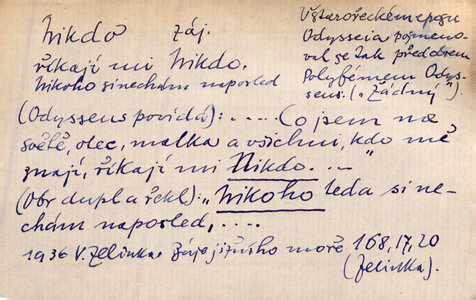 Nikdo záj.
říkají mi Nikdo.
Nikoho si nechám naposled
V starořeckém eposu
Odysseia pojmeno-
val se tak před obrem
Polyfémem Odys-
seus. („Žádný").
(Odysseus povídá): ..... Co jsem na
světě, otec, matka a všichni, kdo mě
znají, říkají mi Nikdo. ..."
(Obr dupl a řekl): „Nikoho teda si ne-
chám naposled, ....
1936 V. Zelinka. Báje jižního moře 168, 17, 20
(Zelinka).